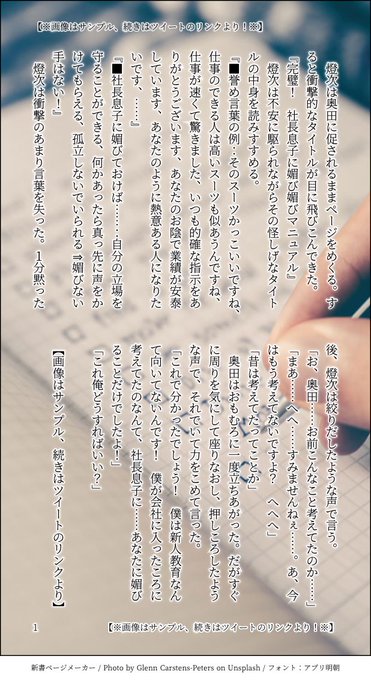 【※画像はサンプル、続きはツイートのリンクより!※】
　燈次は奥田に促されるままページをめくる。す
ると衝撃的なタイトルが目に飛びこんできた。
『完璧!　社長息子に媚び媚びマニュアル』
　燈次は不安に駆られながらその怪しげなタイト
ルの中身を読みすすめる。
『■誉め言葉の例:そのスーツかっこいいですね、
仕事のできる人は高いスーツも似あうんですね、
仕事が速くて驚きました、いつも的確な指示をあ
りがとうございます、あなたのお陰で業績が安泰
しています、あなたのように熱意ある人になりた
いです、……』
『■社長息子に媚びておけば……自分の立場を
守ることができる、何かあったら真っ先に声をか
けてもらえる、孤立しないでいられる⇒媚びない
手はない!』
　燈次は衝撃のあまり言葉を失った。1分黙った
後、燈次は絞りだしたような声で言う。
「お、奥田……お前こんなこと考えてたのか……」
「まあ……へへ……すみませんねぇ……。あ、今
はもう考えてないですよ?　へへへ」
「昔は考えてたってことか」
　奥田はおもむろに一度立ちあがった。だがすぐ
に周りを気にして座りなおし、押しころしたよう
な声で、それでいて力をこめて言った。
「これで分かったでしょう!　僕は新人教育なん
て向いてないんです!　僕が会社に入ったころに
考えてたのなんて、社長息子に……あなたに媚び
ることだけでしたよ!」
「これ俺どうすればいい?」
【画像はサンプル、続きはツイートのリンクより】
1
【※画像はサンプル、続きはツイートのリンクより!※】
新書ページメーカー / Photo by Glenn Carstens-Peters on Unsplash / フォント:アプリ明朝